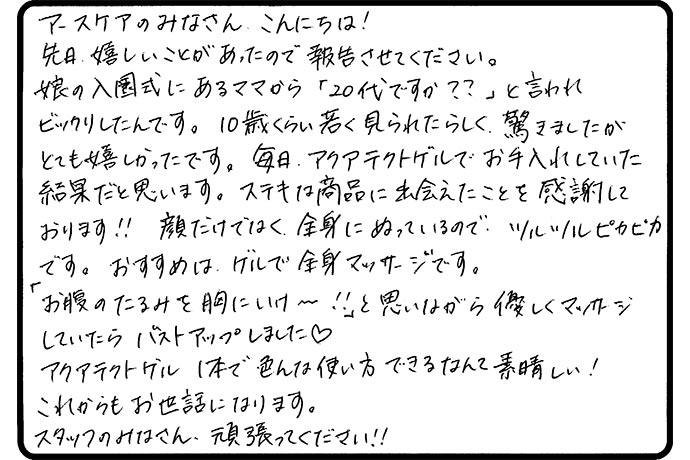 アースケアのみなさん、こんにちは！
先日、嬉しいことがあったので報告させてください。
娘の入園式にあるママから「20代ですか？？」と言われ
ビックリしたんです。10歳くらい若く見られたらしく、驚きましたが
とても嬉しかったです。毎日、アクアテクトゲルでお手入れしていた
結果だと思います。ステキな商品に出会えたことを感謝して
おります!! 顔だけでなく、全身にぬっているので、ツルツルピカピカ
です。おすすめは、ゲルで全身マッサージです。
「お腹のたるみを胸にいけ〜!!」と思いながら優しくマッサージ
していたらバストアップしました♡
アクアテクトゲル 1本で色んな使い方できるなんて素晴しい！
これからもお世話になります。
スタッフのみなさん、頑張ってください!!